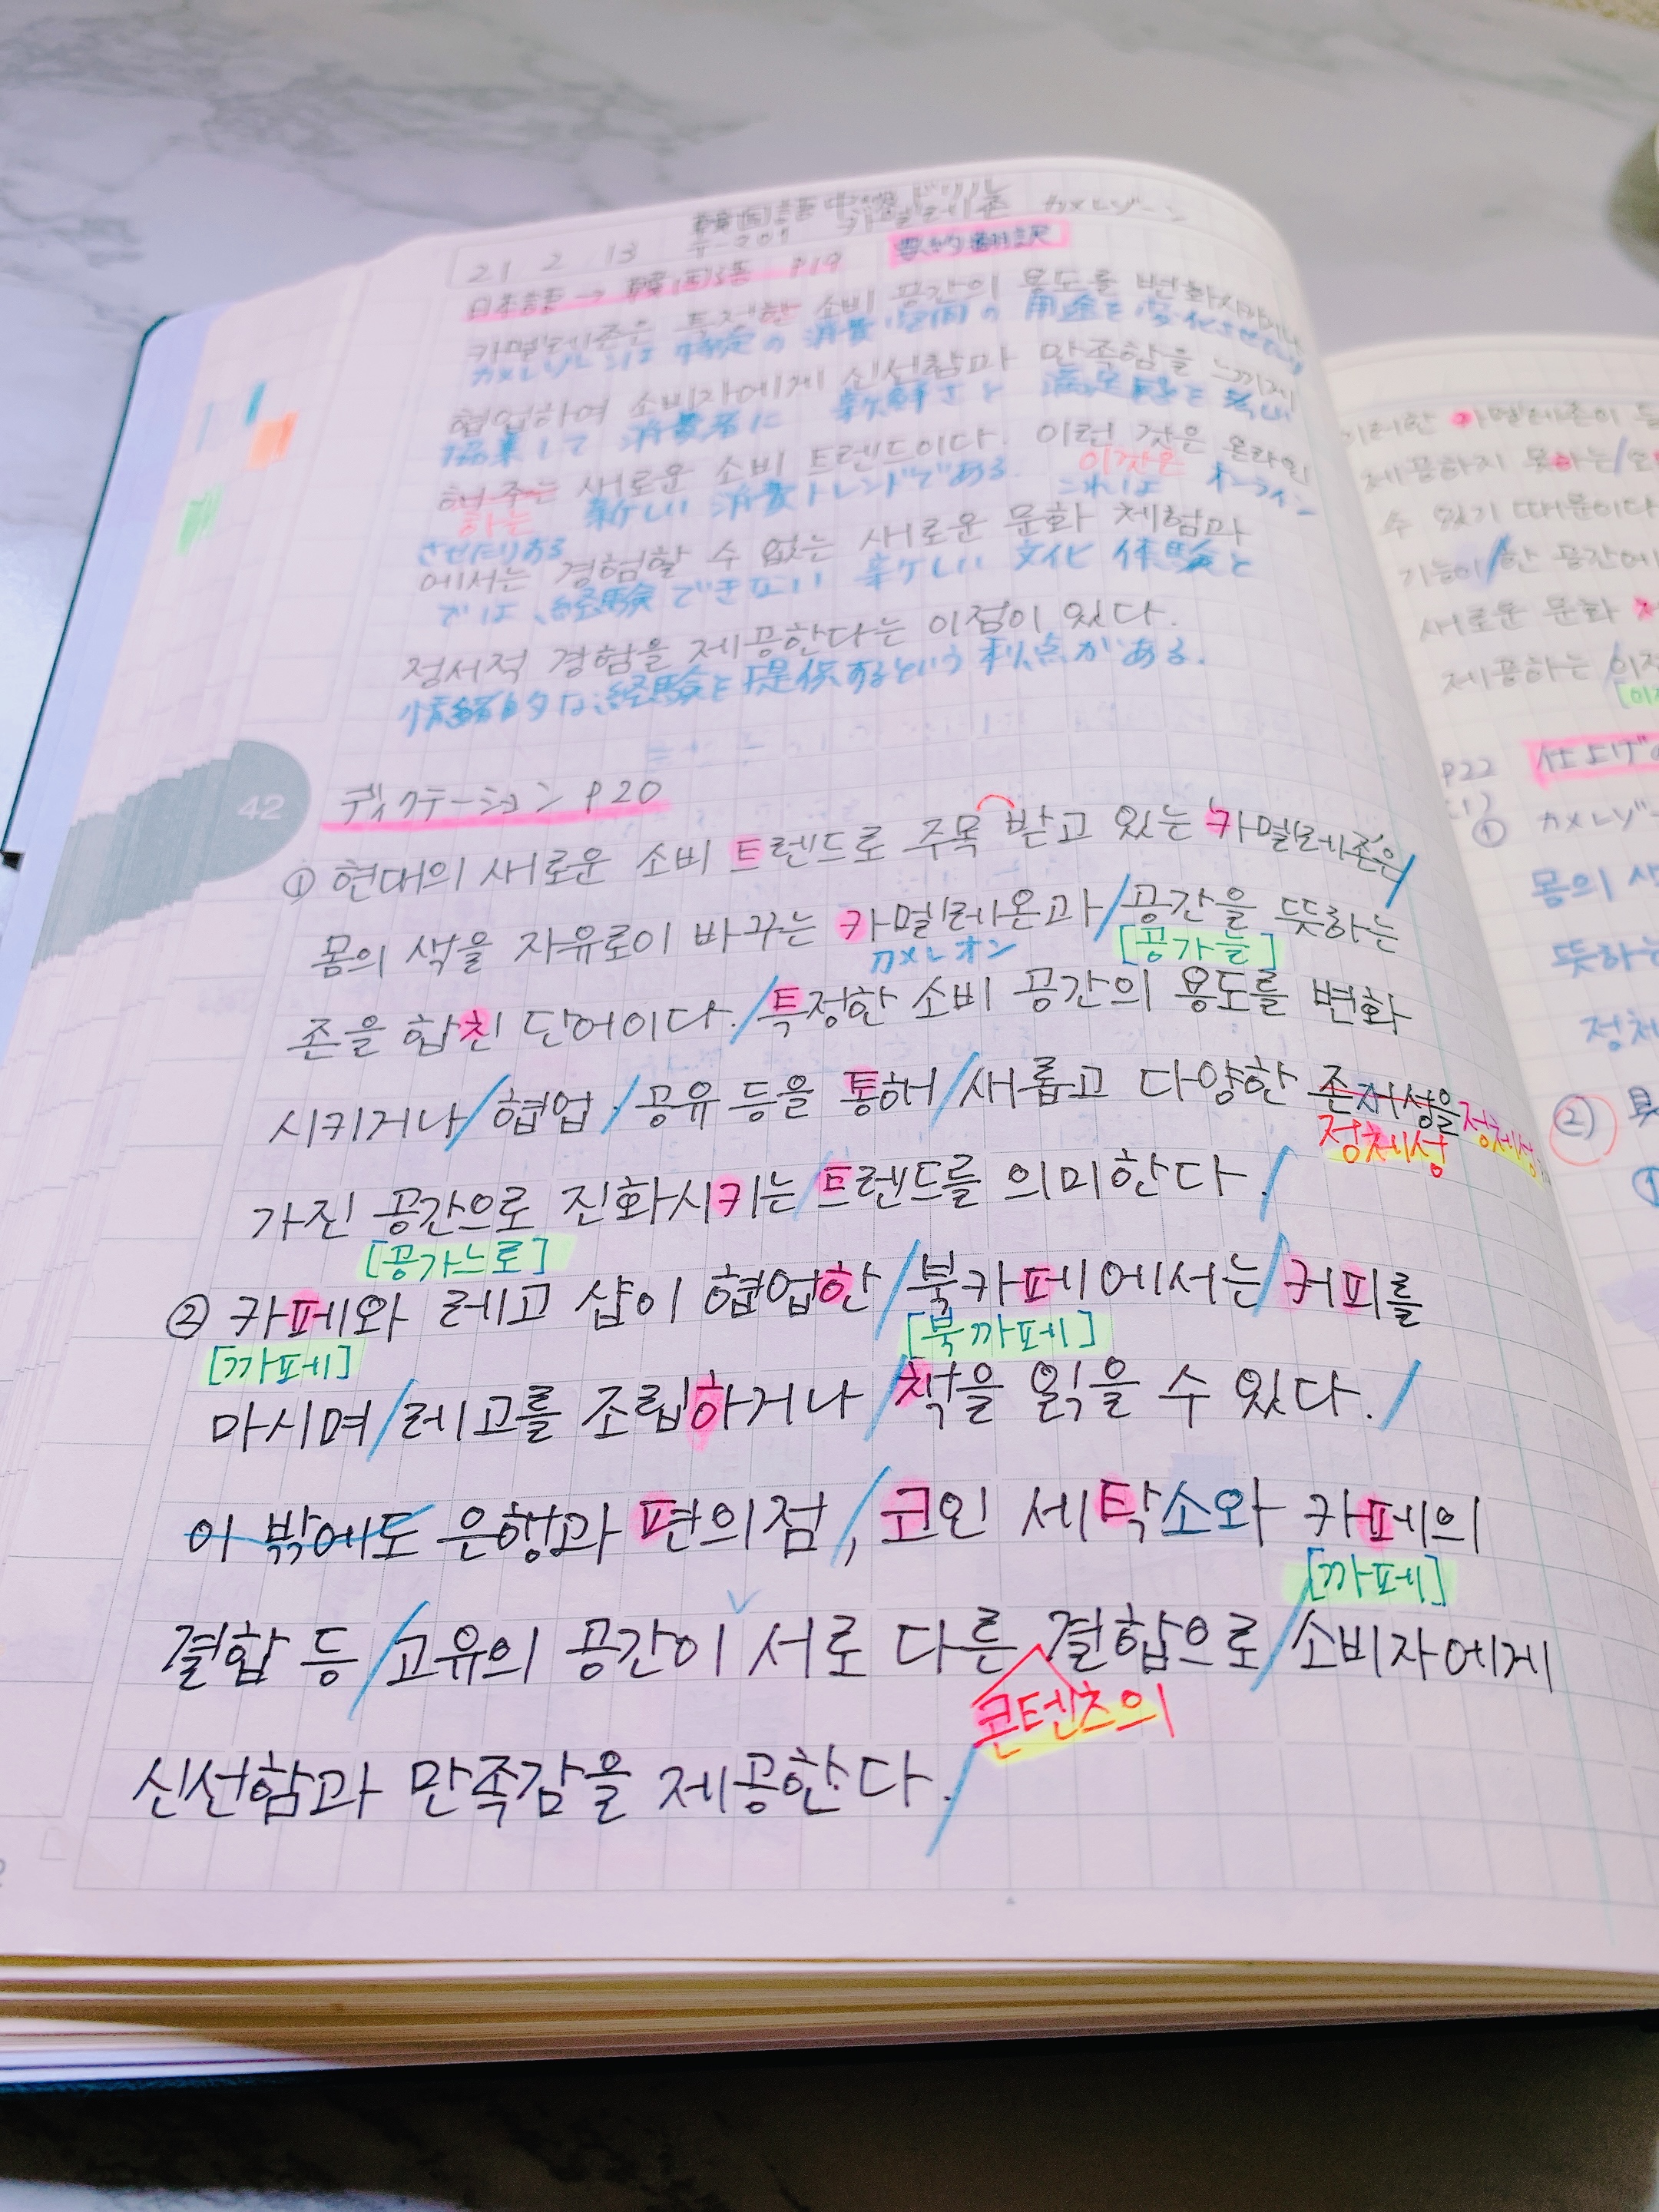 韓国語中級ドリル カメレゾーン
21 2 13 카멜레존
日本語→韓国語 P19 要約翻訳
카멜레존은 특정한 소비 공간의 용도를 변화시키거나
カメレゾーンは 特定の 消費空間の 用途を 変化させたり
협업하여 소비자에게 신선함과 만족함을 느끼게
協業して 消費者に 新鮮さと 満足感を
해 주는 새로운 소비 트렌드이다. 이런 것은 온라인
하는 이것은
新しい 消費トレンドである. これは オーンライン
에서는 경험할 수 없는 새로운 문화 체험과
では、経験できない 新しい 文化 体験と
정서적 경험을 제공한다는 이점이 있다.
情緒的な経験を提供するという利点がある.
42
ディクテーション P20
① 현대의 새로운 소비 트렌드로 주목 받고 있는 카멜레존은/
몸의 색을 자유로이 바꾸는 카멜레온과/공간을 뜻하는
カメレオン [공가늘]
존을 합친 단어이다./특정한 소비 공간의 용도를 변화
시키거나/협업/공유 등을 통해/새롭고 다양한 존재성을 정체성
정체성
가진 공간으로 진화시키는/트렌드를 의미한다./
[공가느로]
② 카페와 레고 샵이 협업한/북카페에서는/커피를
[까페] [북까페]
마시며/레고를 조립하거나/책을 읽을 수 있다./
이 밖에도 은행과 편의점/, 코인 세탁소와 카페의
[까페]
결합 등/고유의 공간이 서로 다른 결합으로/소비자에게
콘텐츠의
신선함과 만족감을 제공한다./
이러한 카멜레존이
제공하지 못하는/
수 있기 때문이다
기능이/한 공간에
새로운 문화
제공하는
P22 仕上げ
① カメレゾー
몸의 색
뜻하는
정체
②
①